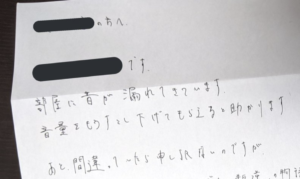 の方へ
です。
部屋に音が漏れてきています。
音量をもう少し下げてもらえると助かります
あと、間違っていたら申し訳ないのですが